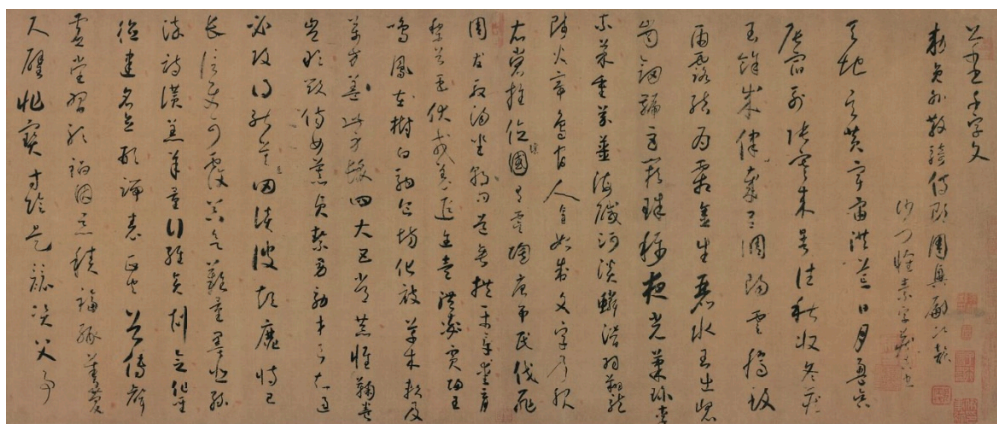 千字文
敕員外散騎侍郎周興嗣次韻
沙門懷素字藏真書
天地玄黃宇宙洪荒日月盈昃
辰宿列張寒來暑往秋收冬藏
閏餘成歲律呂調陽雲騰致
雨露結為霜金生麗水玉出崑
崗劍號巨闕珠稱夜光果珍李
柰菜重芥薑海鹹河淡鱗潛羽翔龍
師火帝鳥官人皇始制文字乃服
衣裳推位讓國有虞陶唐弔民伐罪
周發殷湯坐朝問道垂拱平章愛育
黎首臣伏戎羌遐邇壹體率賓歸王
鳴鳳在樹白駒食場化被草木賴及
萬方蓋此身髮四大五常恭惟鞠養
豈敢毀傷女慕貞潔男效才良知過
必改得能莫忘罔談彼短靡恃己
長信使可覆器欲難量墨悲絲
染詩讚羔羊景行維賢剋念作聖
德建名立形端表正空谷傳聲
虛堂習聽禍因惡積福緣善慶
尺璧非寶寸陰是競資父事